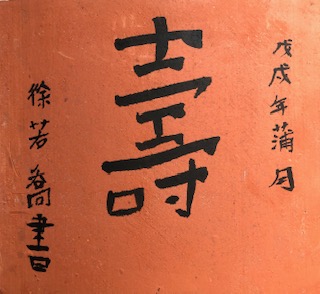 戊戌年蒲月
壽
徐若喬書